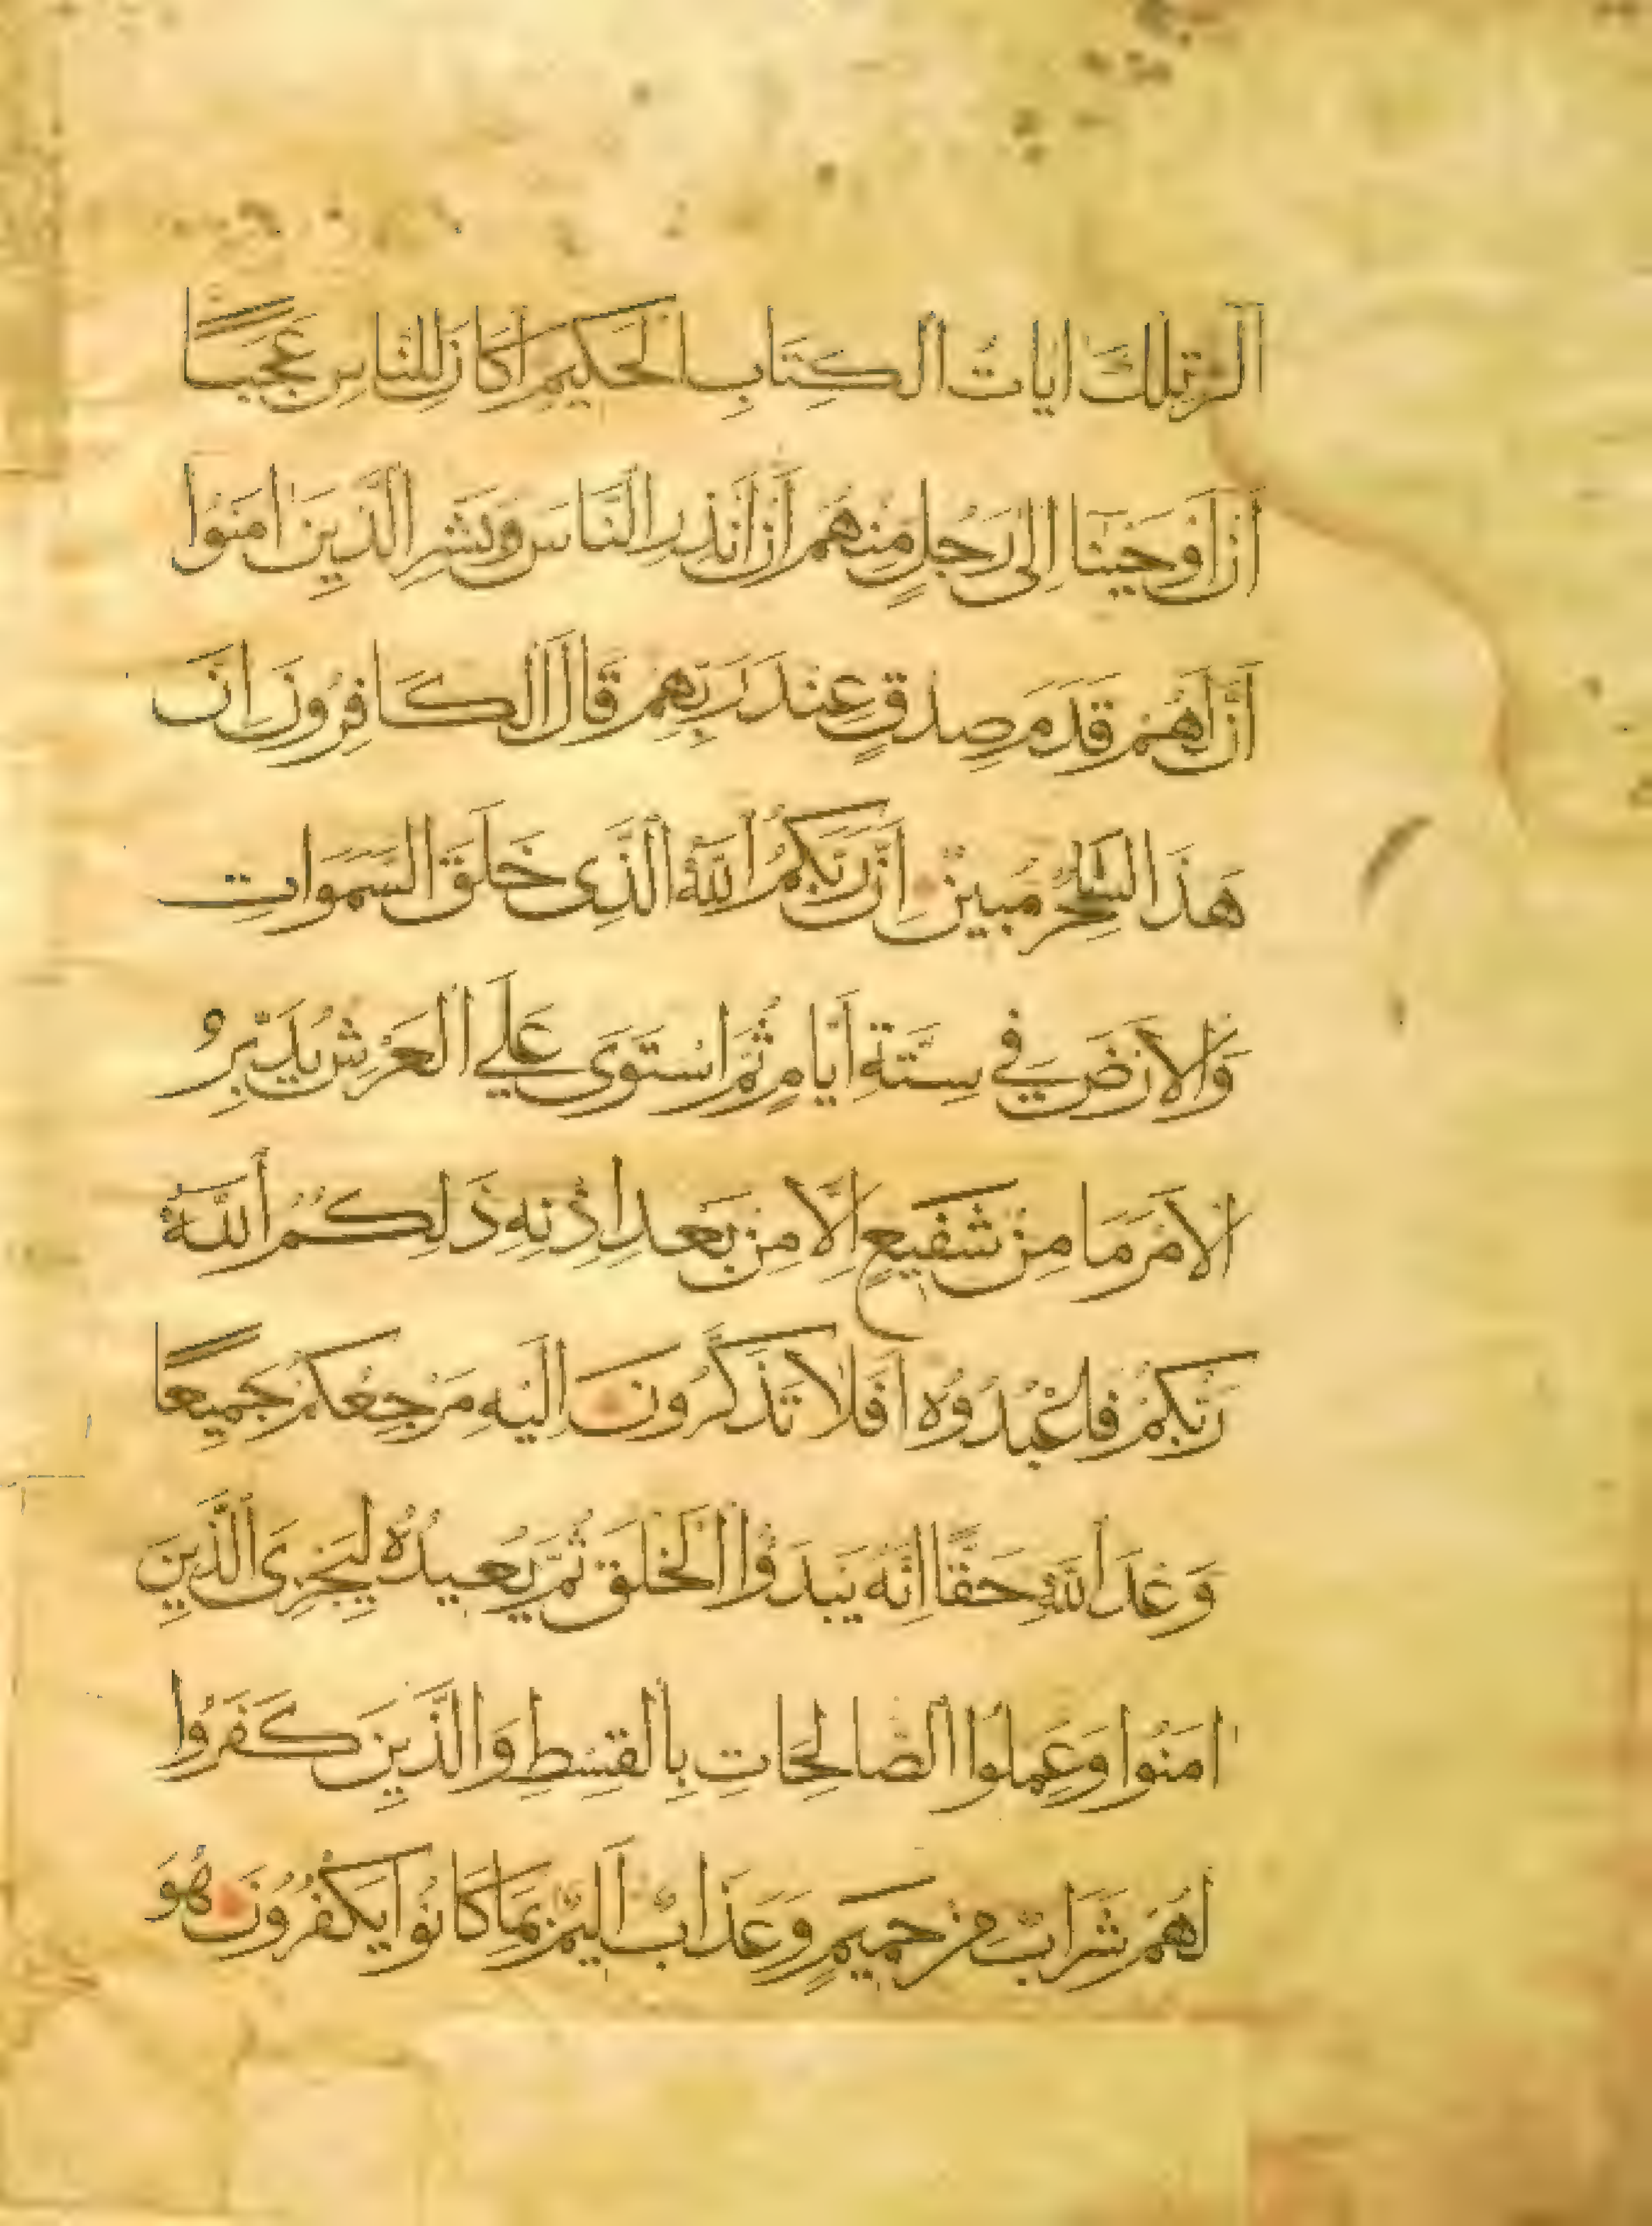 الر تِلْكَ اٰيَاتُ الْكِتَابِ الْحَكِيمِ أَكَانَ لِلنَّاسِ عَجَبًا
أَنْ أَوْحَيْنَا إِلَىٰ رَجُلٍ مِنْهُمْ أَنْ أَنْذِرِ النَّاسَ وَبَشِّرِ الَّذِينَ اٰمَنُوا
أَنَّ لَهُمْ قَدَمَ صِدْقٍ عِنْدَ رَبِّهِمْ قَالَ الْكَافِرُونَ اِنَّ
هَذَا لَسٰحِرٌ مُبِينٌ اِنَّ رَبَّكُمُ اللّٰهُ الَّذِى خَلَقَ السَّمَوَاتِ
وَالْاَرْضَ فِي سِتَّةِ اَيَّامٍ ثُمَّ اسْتَوَى عَلَى الْعَرْشِ يُدَبِّرُ
الْاَمْرَ مَا مِنْ شَفِيعٍ اِلَّا مِنْ بَعْدِ اِذْنِهِ ذَلِكُمُ اللّٰهُ
رَبُّكُمْ فَاعْبُدُوهُ اَفَلَا تَذَكَّرُونَ اِلَيْهِ مَرْجِعُكُمْ جَمِيعًا
وَعْدَ اللّٰهِ حَقًّا اِنَّهُ يَبْدَؤُا الْخَلْقَ ثُمَّ يُعِيدُهُ لِيَجْزِىَ الَّذِينَ
اٰمَنُوا وَعَمِلُوا الصَّالِحَاتِ بِالْقِسْطِ وَالَّذِينَ كَفَرُوا
لَهُمْ شَرَابٌ مِنْ حَمِيمٍ وَعَذَابٌ اَلِيمٌ بِمَا كَانُوا يَكْفُرُونَ هُوَ